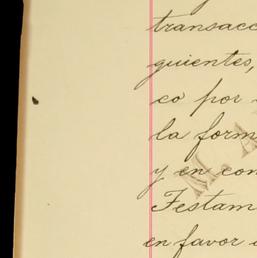 transacc
guientes,
co por
la form
y en con
Testam
en favor